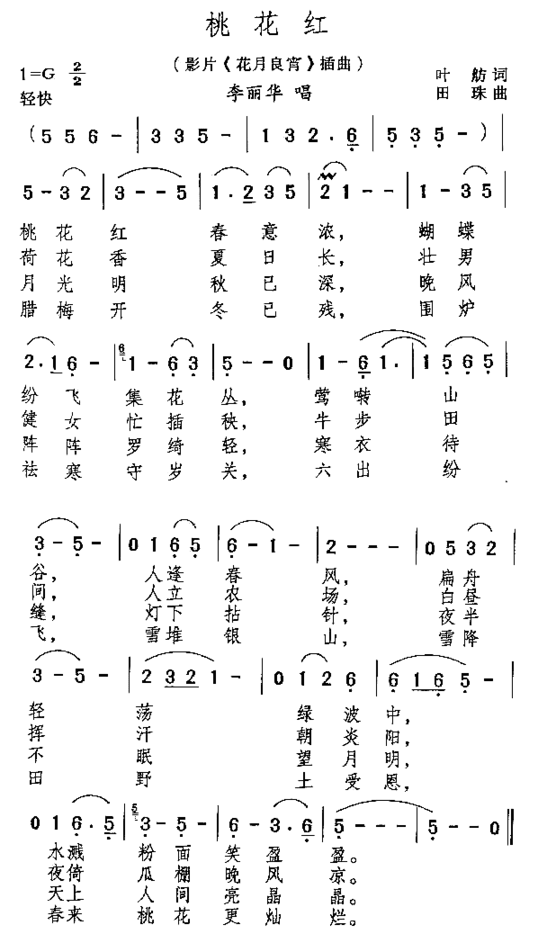 桃花红
（影片《花月良宵》插曲）
1=G 2/2
叶舫 词
轻快
李丽华 唱
田珠 曲
( 5 5 6 - | 3 3 5 - | 1 3 2 . 6 | 5 3 5 - ) |
5 - 3 2 | 3 - - 5 | 1 . 2 3 5 | 2 1 - - | 1 - 3 5 |
桃花红 春意浓， 蝴蝶
荷花香 夏日长， 壮男
月光明 秋已深， 晚风
腊梅开 冬已残， 围炉
2 . 1 6 - | 6 1 - 6 3 | 5 - - 0 | 1 - 6 1 . | 1 5 6 5 |
纷飞集花丛， 莺啭山
健女忙插秧， 牛步田
阵阵罗绮轻， 寒衣待
祛寒守岁关， 六出纷
3 - 5 - | 0 1 6 5 | 6 - 1 - | 2 - - - | 0 5 3 2 |
谷， 人逢春风， 扁舟
间， 人立农场， 白昼
缝， 灯下拈针， 夜半
飞， 雪堆银山， 雪降
3 - 5 - | 2 3 2 1 - | 0 1 2 6 | 6 1 6 5 - |
轻荡 绿波中，
挥汗 朝炎阳，
不眠 望月明，
田野 土受恩，
0 1 6 . 5 | 5 3 - 5 - | 6 - 3 . 6 | 5 - - - | 5 - - 0 ‖
水溅粉面笑盈盈。
夜倚瓜棚晚风凉。
天上人间亮晶晶。
春来桃花更灿烂。